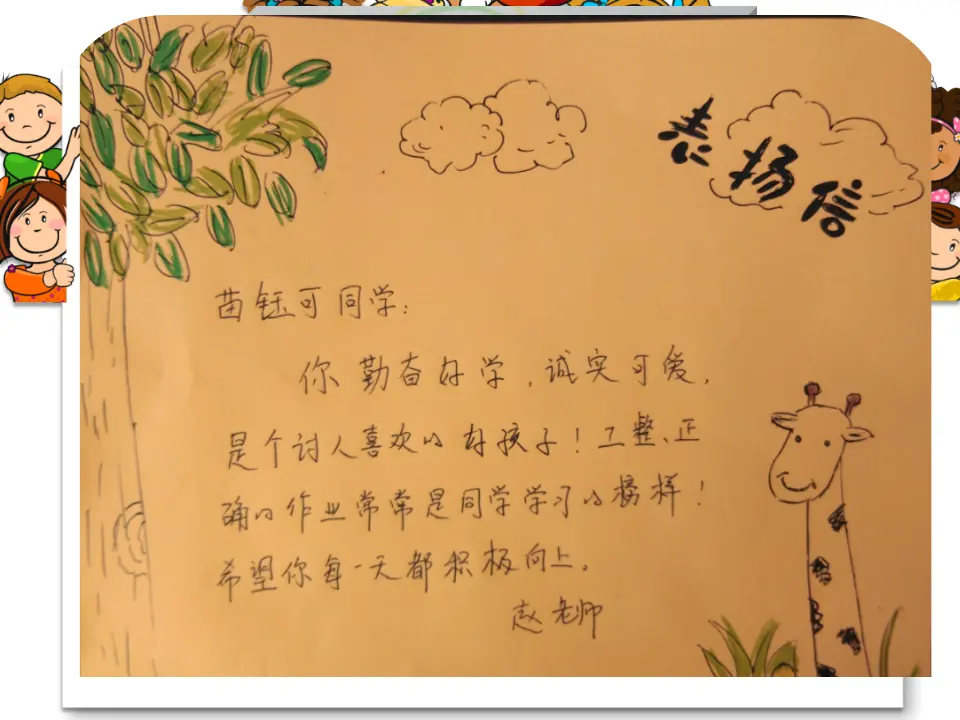 表扬信
苗钰可同学:
你勤奋好学,诚实可爱,
是个讨人喜欢的好孩子!工整、正
确的作业常常是同学学习的榜样!
希望你每一天都积极向上。
赵老师